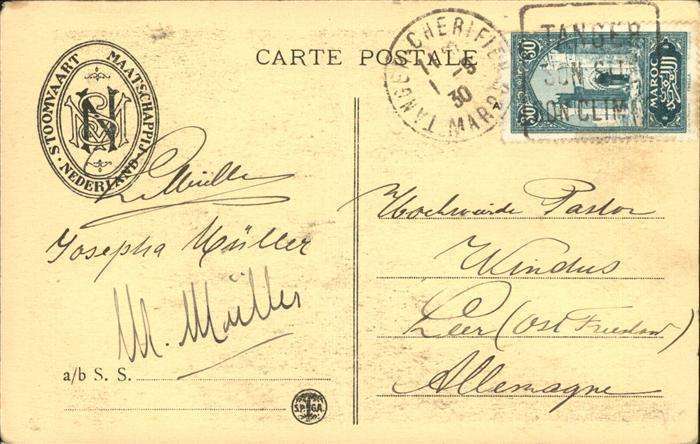 CARTE POSTALE
STOOMVAART MAATSCHAPPIJ
NEDERLAND
SMN
TANGER CHERIFIEN
1 -5
30
MAROC
TANGER
SON CLIMA
30 30
MAROC
Müller
Josepha Müller
M. Müller
a/b S. S.
S.P.GA.
Hochwürde Pastor
Windus
Leer (Ost Friesland)
Allemagne